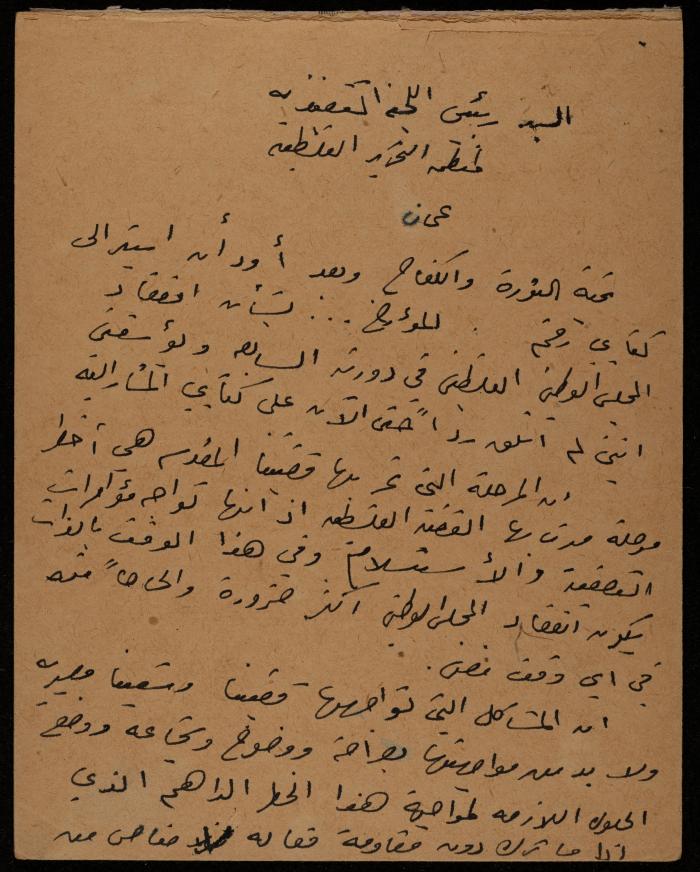 السيد رئيس اللجنة التنفيذية
لمنظمة التحرير الفلسطينية
عمان
تحية الثورة والكفاح وبعد أود أن اشير الى
كتابي رقم . للمؤرخ ... بشأن انعقاد
المجلس الوطني الفلسطيني في دورته السابعه ويؤسفني
انني لم اتلق رداً حتى الآن على كتابي المشار اليه
ان المرحلة التي تمر بها قضيتنا المقدسه هي أخطر
مرحلة مرت بها القضية الفلسطينيه اذ انها تواجه مؤآمرات
التصفية والأستسلام وفي هذا الوقت بالذات
يكون انعقاد المجلس الوطني اكثر ضرورة والحاحاً منه
في اي وقت مضى.
ان المشاكل التي تواجهها قضيتنا وشعبنا مصيريه
ولا بد من مواجهتها بصراحة ووضوح وشجاعه ووضع
الحلول اللازمه لمواجهة هذا الخطر الداهم الذي
اذا ما ترك دون مقاومة فعاله مناص من